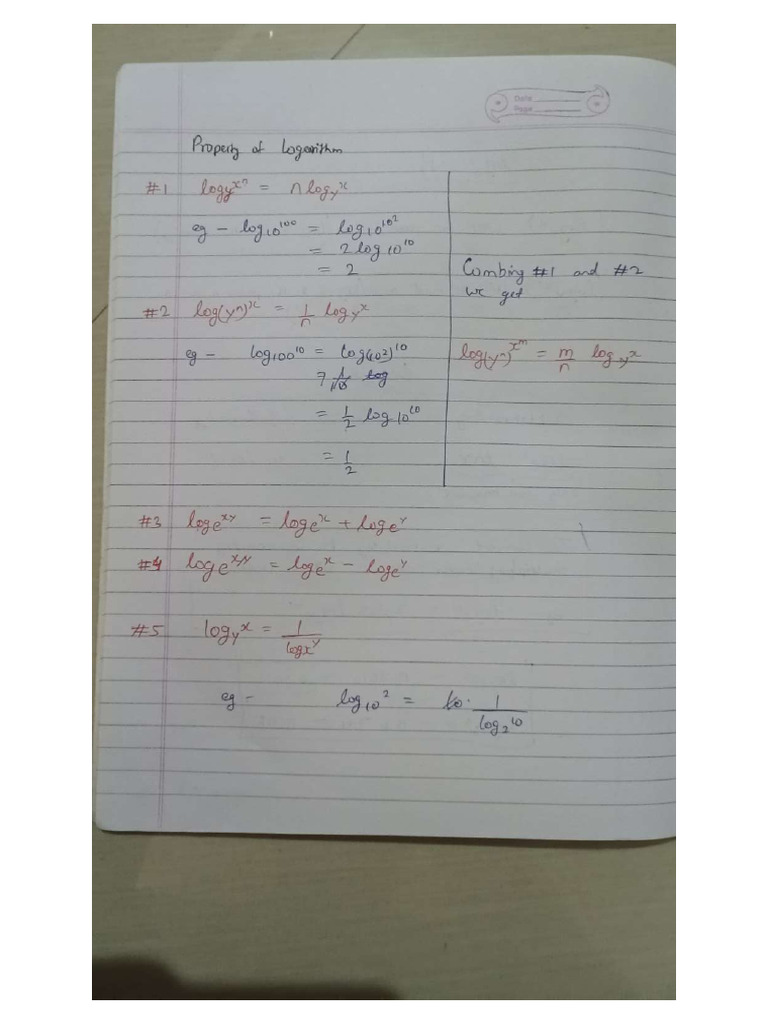 Date
Page
Property of Logarithm
#1 logy^xⁿ = n log_y^x
eg - log₁₀^100 = log₁₀^10²
= 2 log 10^10
= 2
#2 log(yⁿ)^x = 1/n log_y^x
eg - log₁₀₀^10 = log(10²)^10
= 1/2 log 10^10
= 1/2
Combing #1 and #2
we get
log(yⁿ)^x^m = m/n log_y^x
#3 loge^xy = loge^x + loge^y
#4 loge^x/y = loge^x - loge^y
#5 log_y^x = 1/logx^y
eg - log₁₀^2 = 1/log₂^10